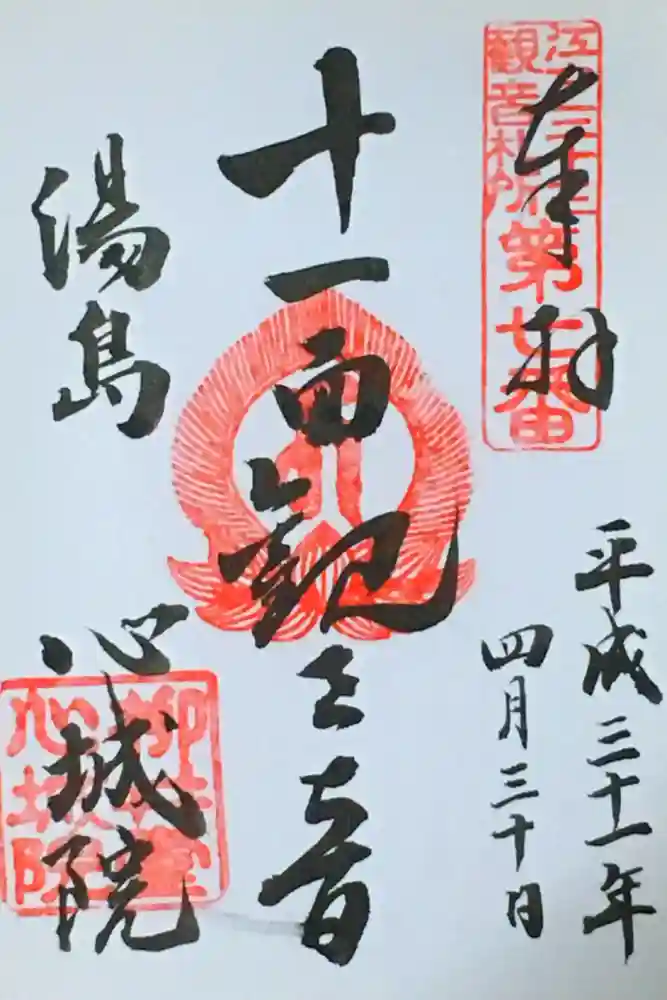 奉拝
江戸三十三
観音札所
第七番
平成三十一年
四月三十日
十一面観世音
湯島
心城院
柳井堂
心城院